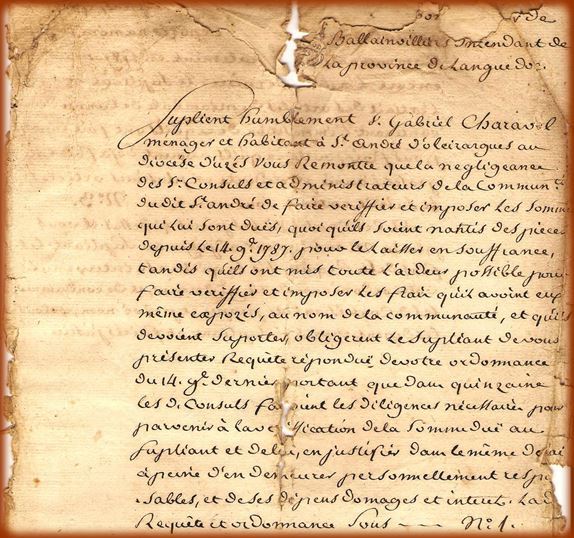 de
Ballainvilliers intendant de
La province de Languedoc.
Suplient humblement Sr. Gabriel Charavel
menager et habitant à St. andré d'oleirargues au
diocese d'uzés vous Remontre que la negligeance
des Srs. Consuls et administrateurs de la Commun.té
du dit St. andré de faire veriffier et imposer les Somme
qui lui sont duës, quoi qu'ils soient nantis des pieces
depuis le 14. 9e. 1787. pour le laisser en souffrance,
tandis qu'ils ont mis toute l'ardeur possible pour
faire veriffier et imposer les frair qu'ils avoint eux
même exposés, au nom de la communauté, et qu'ils
devoient suporter, obligerent le supliant de vous
présenter Requête répondüe de votre ordonnance
du 14. 9e. dernier portant que dans quinzaine
les d. Consuls les diligences nécessaires pour
parvenir à la de la Somme duë au
Supliant et de lui en justiffier dans le même delai
à peine d'en demeurer personnellement respo
-sables, et de ses dépens domages et interets. La d.
Requête et ordonnance sous --- No. 1.